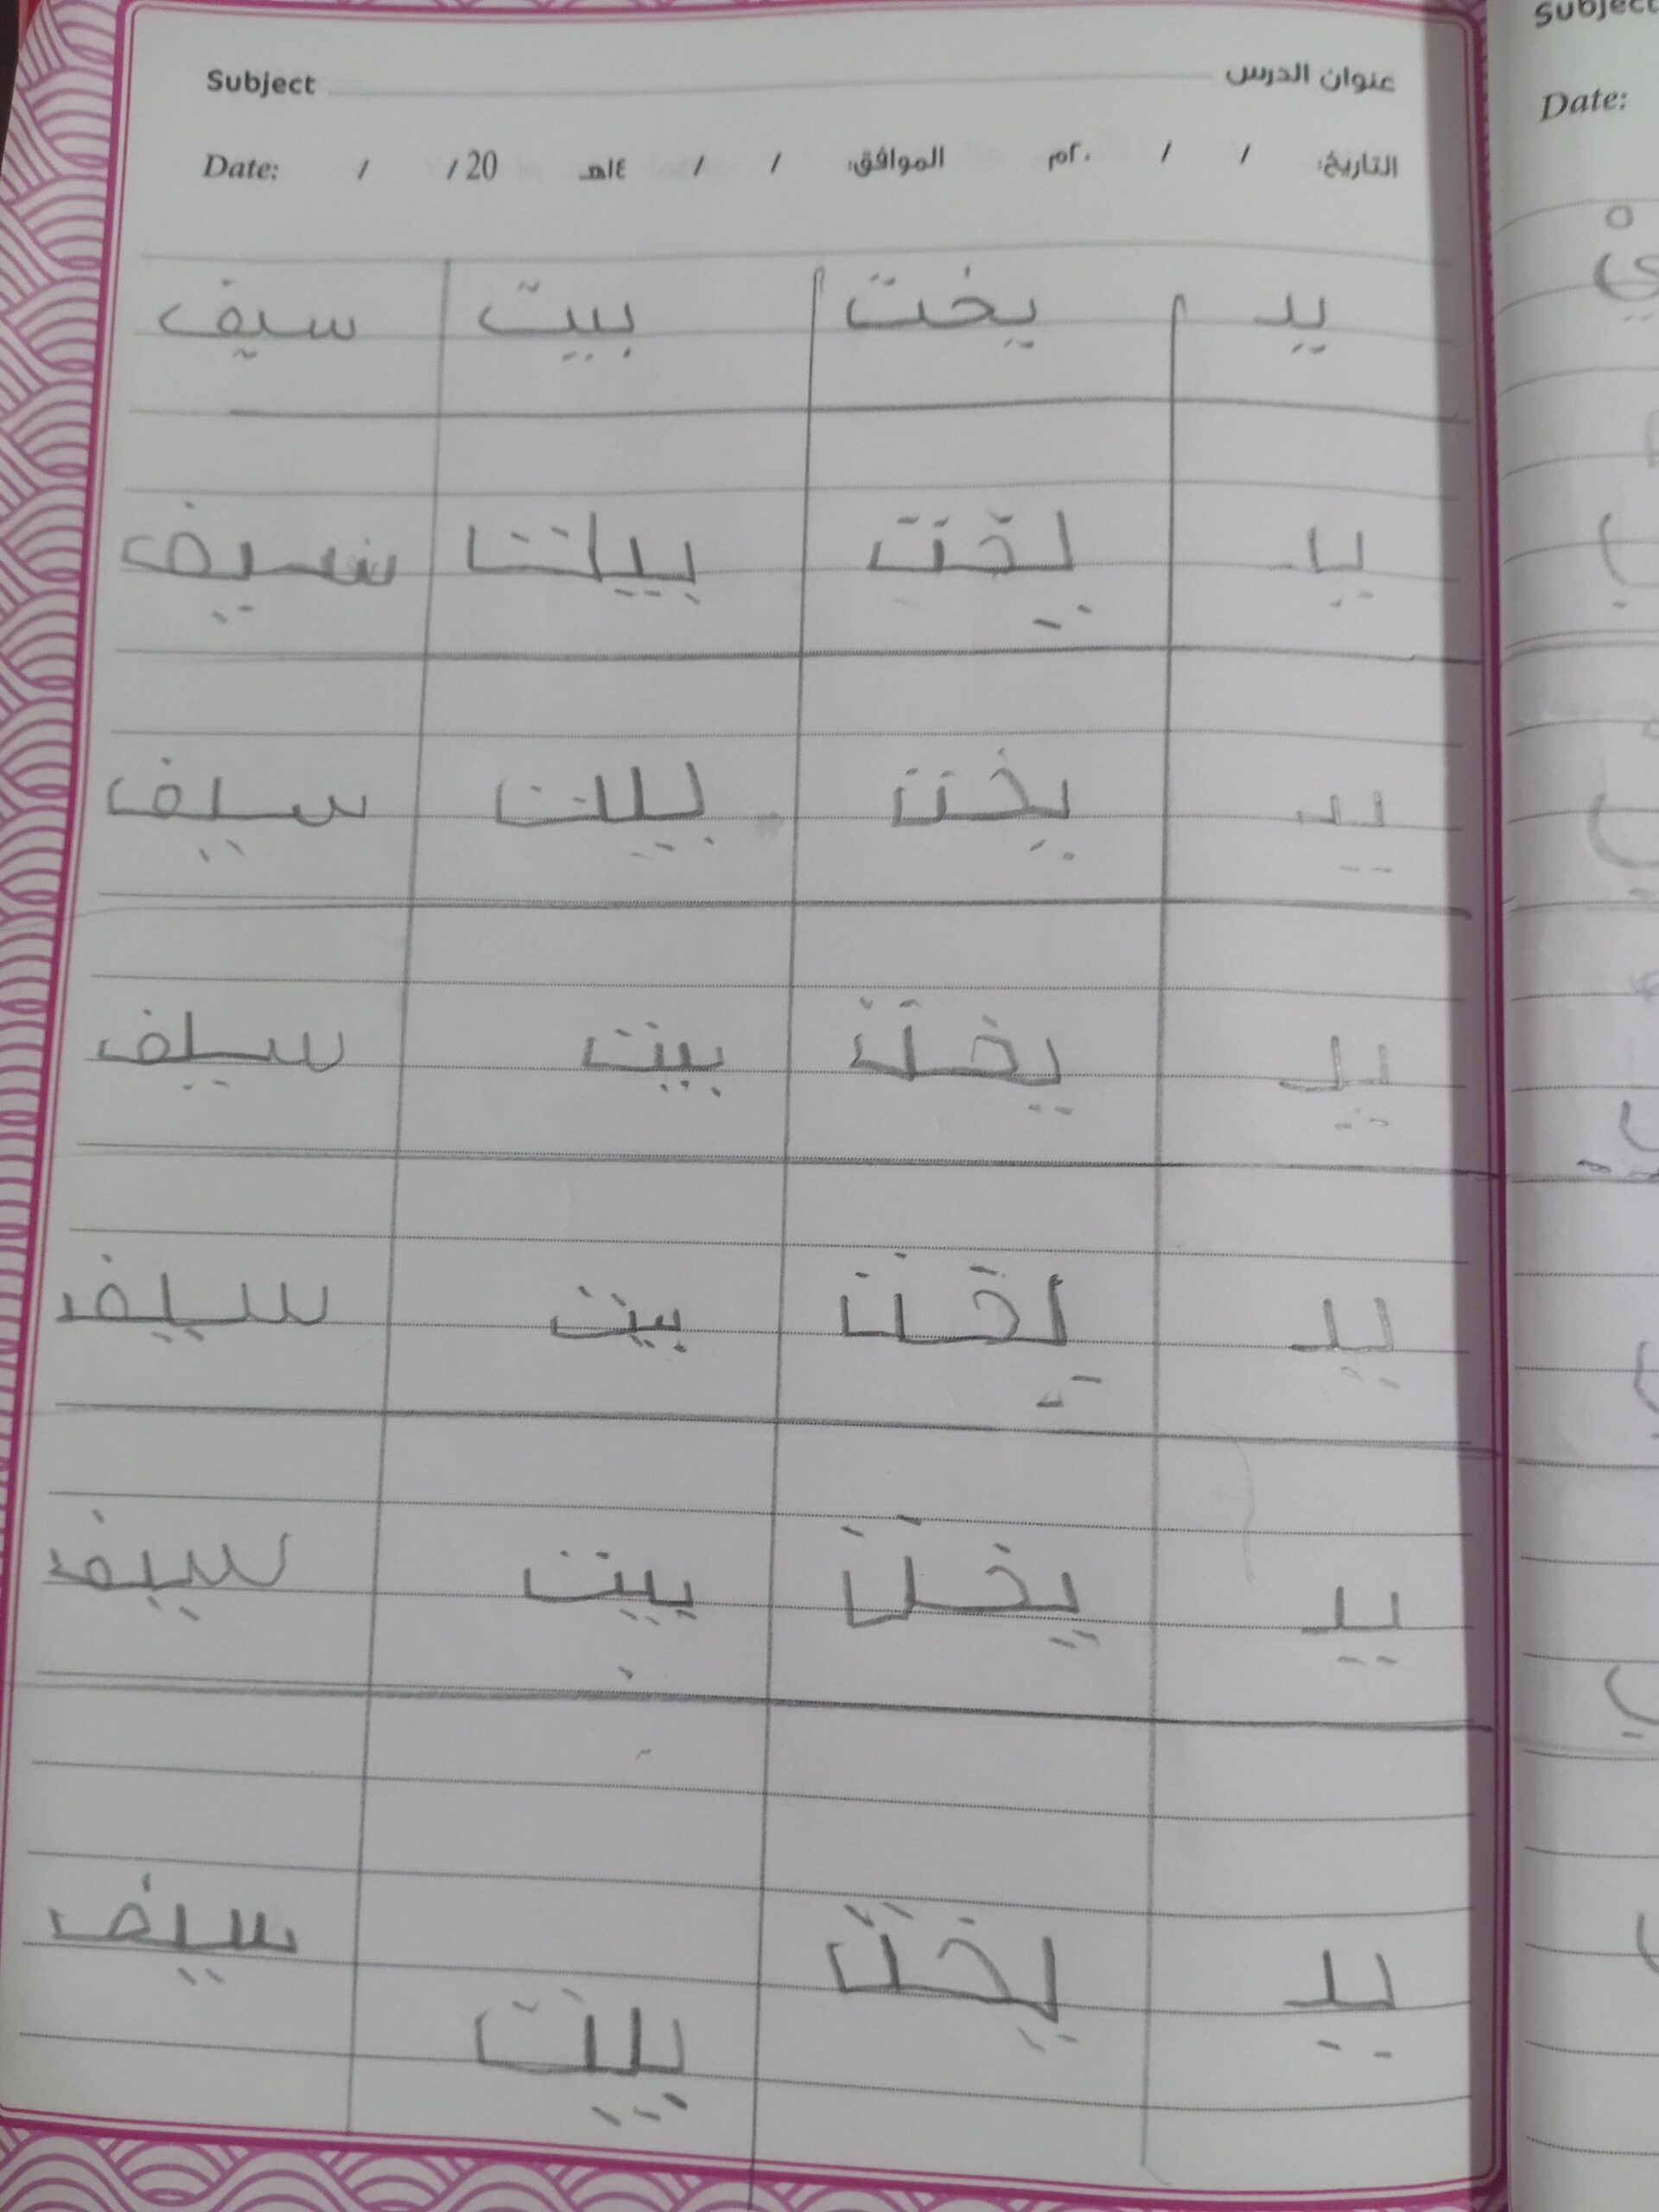 Subject عنوان الدرس
Date: / / 20 التاريخ: / / ٢٠م الموافق: / / ١٤هـ
يد يخت بيت سيف
يد يخت بيت سيف
يد يخت بيت سيف
يد يخت بيت سيف
يد يخت بيت سيف
يد يخت بيت سيف
يد يخت بيت سيف
Subject
Date: